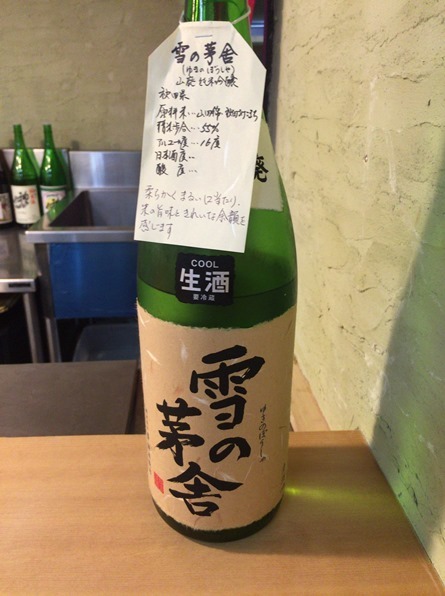 雪の茅舎
(ゆきのぼうしゃ)
山廃 純米吟醸
秋田県
原料米…山田錦 秋田酒こまち
精米歩合…55%
アルコール度…16度
日本酒度…
酸 度…
柔らかくまるい口当たり。
米の旨味ときれいな余韻を
感じます
廃
COOL
生酒
要冷蔵
雪の
茅舎
ゆきのぼうしゃ